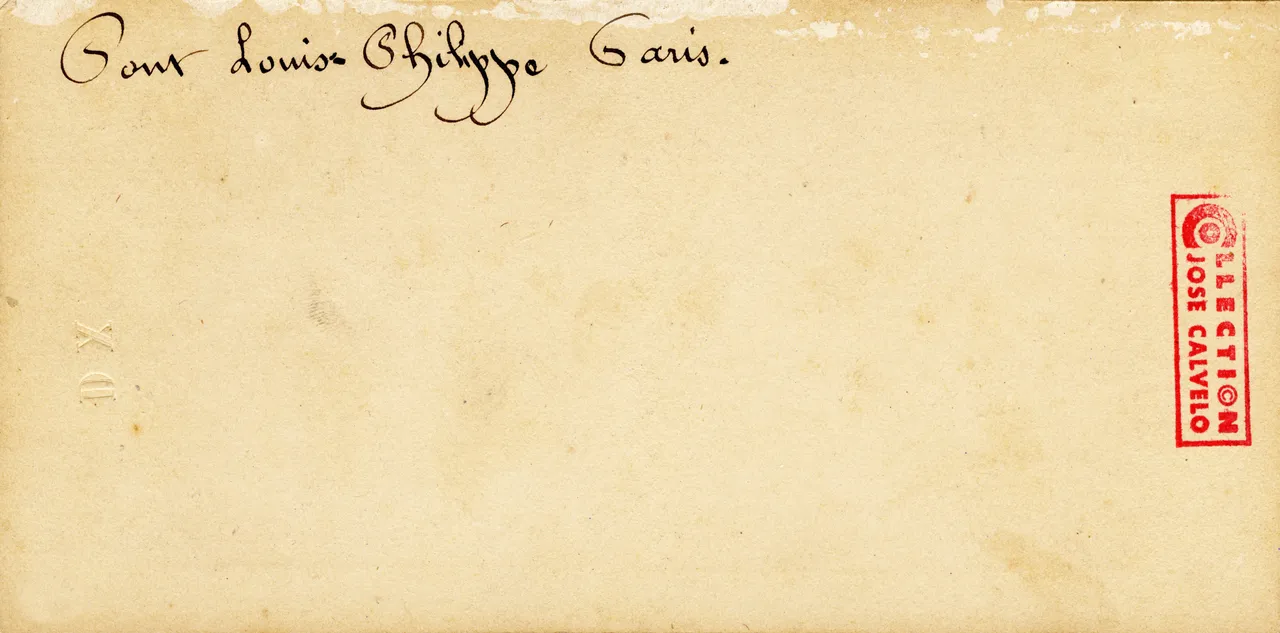 Pont Louis-Philippe Paris.
COLLECTION
JOSE CALVELO
DX